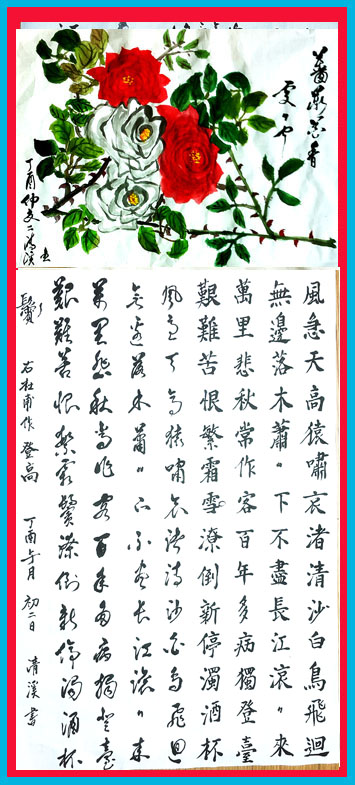 薔薇
香
丁酉仲夏
清溪
風急天高猿嘯哀渚清沙白鳥飛迴
無邊落木蕭〃下不盡長江滾〃來
萬里悲秋常作客百年多病獨登臺
艱難苦恨繁霜雪潦倒新停濁酒杯
風急天高猿嘯哀渚清沙白鳥飛迴
無邊落木蕭〃下不盡長江滾〃來
萬里悲秋常作客百年多病獨登臺
艱難苦恨繁霜鬢潦倒新停濁酒杯
鬢
右杜甫作登高
丁酉年
月初二日
清溪書